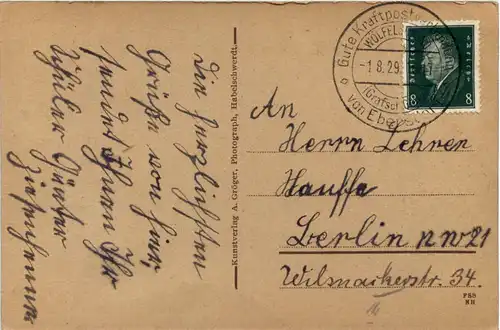 Die herzlichsten
Grüße von hier,
sendet Ihnen Ihr
Schüler Günter
Kunstverlag A. Gröger, Photograph, Habelschwerdt.
Gute Kraftpost
WÖLFELS
-1.8.29.
(Grafsch
von Ebe
Deutsches Reich
8 8
An
Herrn Lehrer
Hauffe
Berlin NW21
Wilsnackerstr. 34.